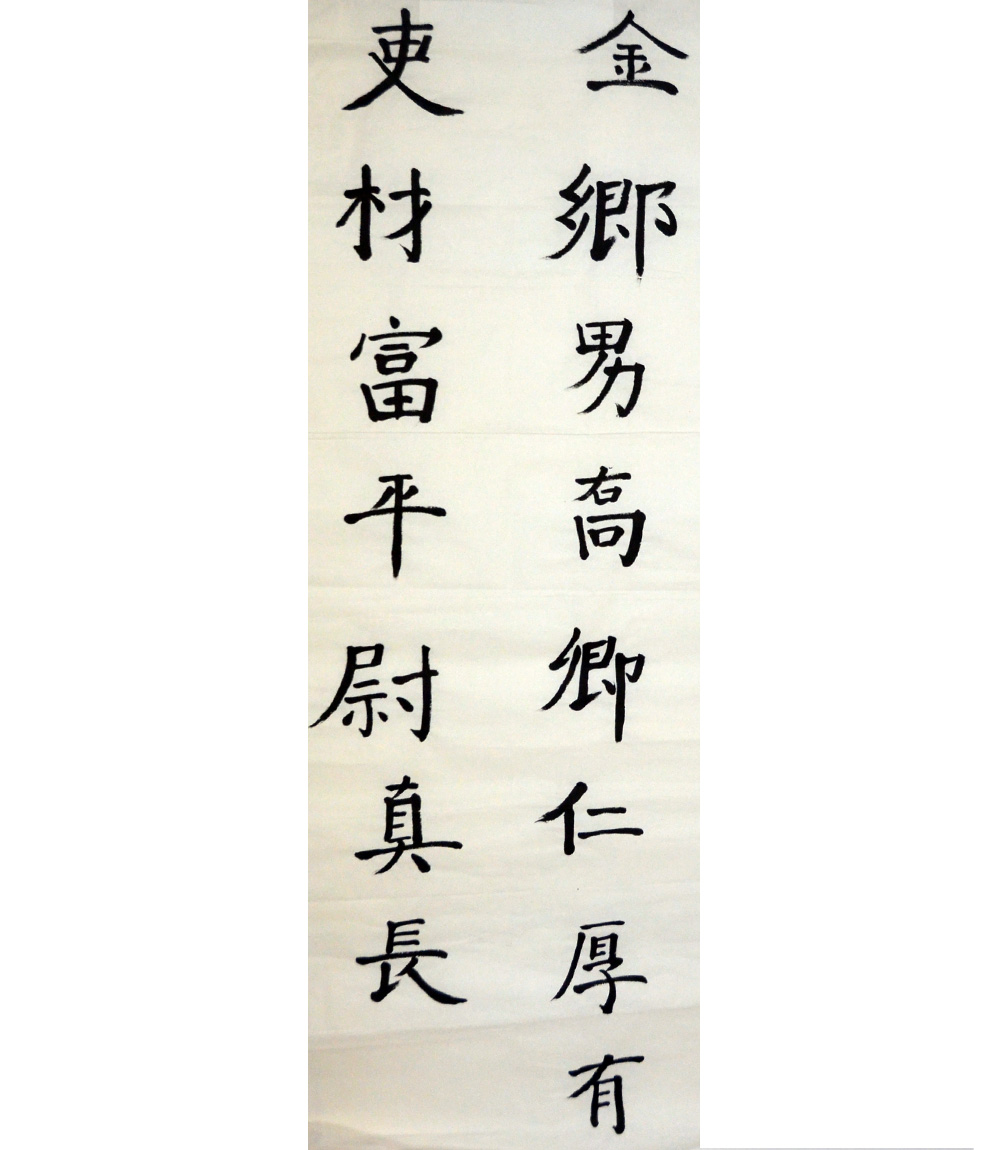 金鄉男高卿仁厚有
吏材富平尉真長